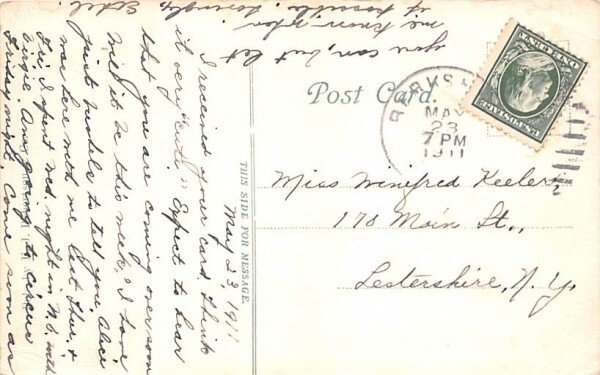 Post Card.
THIS SIDE FOR MESSAGE.
MAY
23
7 PM
1911
U.S. POSTAGE
ONE CENT
Miss Winifred Keeler,
178 Main St.,
Lestershire, N.Y.
May 23, 1911
I received your card, think
it very "cute." Expect to hear
that you are coming over soon
Will it be this week, I have
just to tell you. Alice
was here with me last Thur. &
Fri. I spent Wed. night in N.B. with
Am going to circus
Friday night. Come soon as
you can, but let
me know when
if possible. Lovingly,
Ethel.